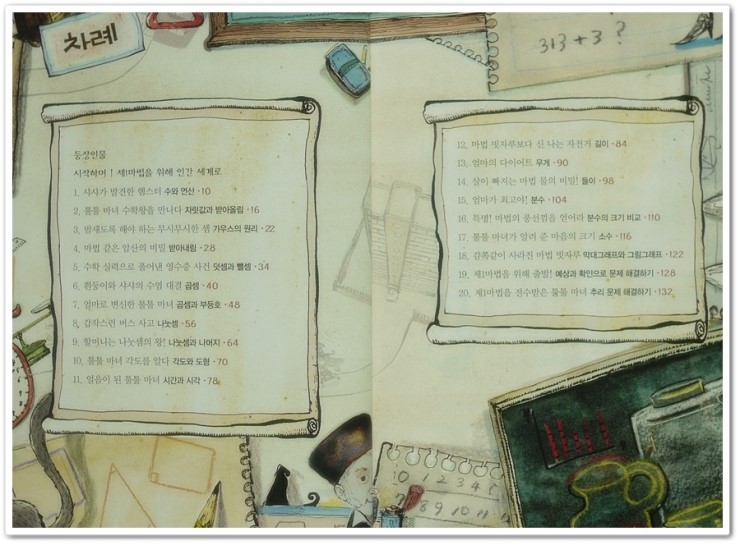 차례
313 + 3 ?
등장인물
시작하며! 제1마법을 위해 인간 세계로
1. 샤샤가 발견한 햄스터 수와 연산 · 10
2. 툴툴 마녀 수학왕을 만나다 자릿값과 받아올림 · 16
3. 밤새도록 해야 하는 무시무시한 셈 가우스의 원리 · 22
4. 마법 같은 암산의 비밀 받아내림 · 28
5. 수학 실력으로 풀어낸 영수증 사건 덧셈과 뺄셈 · 34
6. 흰둥이와 샤샤의 수염 대결 곱셈 · 40
7. 얼마로 변신한 툴툴 마녀 곱셈과 부등호 · 48
8. 갑작스런 버스 사고 나눗셈 · 56
9. 할머니는 나눗셈의 왕! 나눗셈과 나머지 · 64
10. 툴툴 마녀 각도를 알다 각도와 도형 · 70
11. 얼음이 된 툴툴 마녀 시간과 시각 · 78
12. 마법 빗자루보다 신 나는 자전거 길이 · 84
13. 엄마의 다이어트 무게 · 90
14. 살이 빠지는 마법 물의 비밀! 들이 · 98
15. 엄마가 최고야! 분수 · 104
16. 특명! 마법의 풍선껌을 얻어라 분수의 크기 비교 · 110
17. 툴툴 마녀가 알려 준 마음의 크기 소수 · 116
18. 감쪽같이 사라진 마법 빗자루 막대그래프와 그림그래프 · 122
19. 제1마법을 위해 출발! 예상과 확인으로 문제 해결하기 · 128
20. 제1마법을 전수받은 툴툴 마녀 추리 문제 해결하기 · 132
0 1 2 3 4 5
7 8 9 10 11